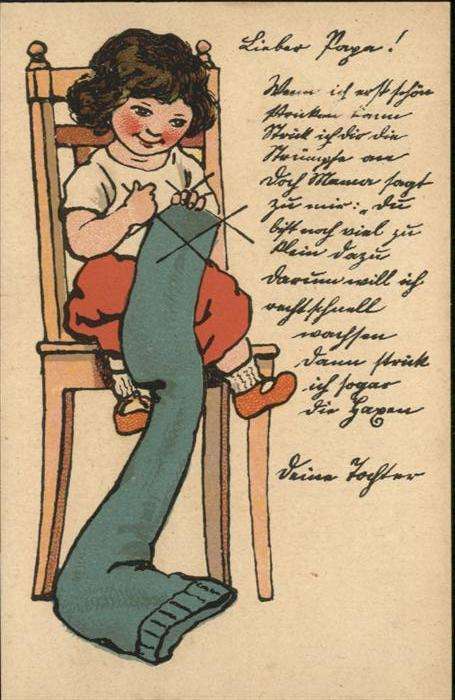 Lieber Papa!
Wenn ich erst schön
stricken kann
Strick ich dir die
Strümpfe an
Doch Mama sagt
zu mir: „Du
bist noch viel zu
klein dazu
Darum will ich
recht schnell
wachsen
Dann strick
ich sogar
die Haxen
Deine Tochter